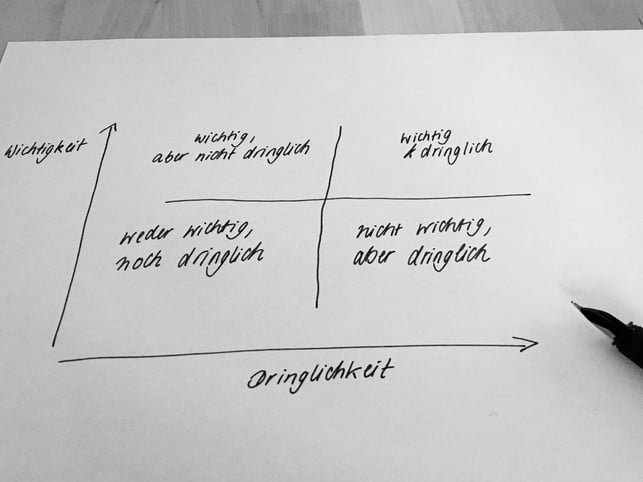 Wichtigkeit
wichtig,
aber nicht dringlich
wichtig
& dringlich
weder wichtig,
noch dringlich
nicht wichtig,
aber dringlich
Dringlichkeit